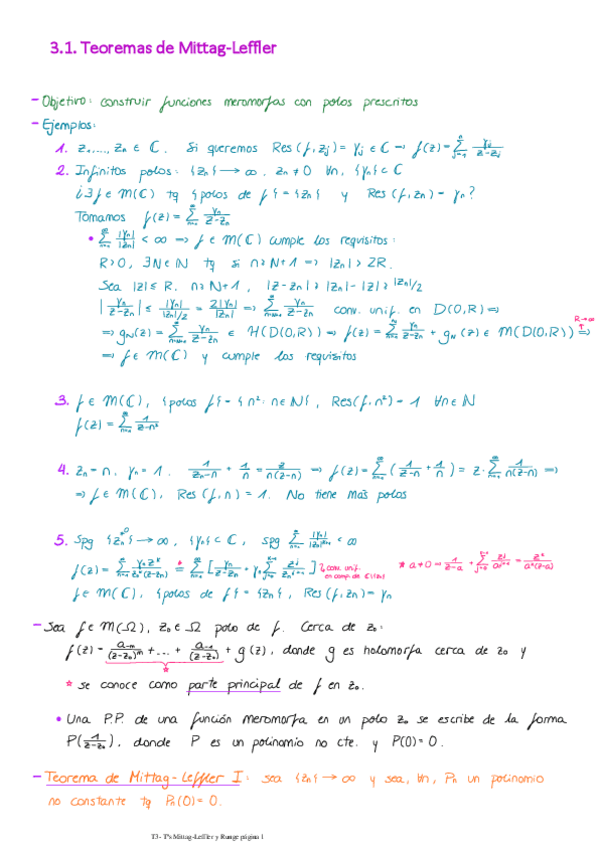 3.1. Teoremas de Mittag-Leffler
- Objetivo: construir funciones meromorfas con polos prescritos
- Ejemplos:
1. z₁,..., zₙ ∈ ℂ. Si queremos Res(f, zⱼ) = γⱼ ∈ ℂ → f(z) = Σⱼ₌₁ⁿ γⱼ/(z-zⱼ)
2. Infinitos polos: {zₙ} → ∞. zₙ ≠ 0 ∀n, {γₙ} ⊂ ℂ
¿∃f ∈ M(ℂ) tq {polos de f} = {zₙ} y Res(f, zₙ) = γₙ?
Tomamos f(z) = Σₙ₌₁^∞ γₙ/(z-zₙ)
• Σₙ₌₁^∞ |γₙ|/|zₙ| < ∞ ⇒ f ∈ M(ℂ) cumple los requisitos:
R>0, ∃N∈ℕ tq si n ≥ N+1 ⇒ |zₙ| > 2R.
Sea |z| ≤ R. n ≥ N+1, |z-zₙ| ≥ |zₙ| - |z| ≥ |zₙ|/2
|γₙ/(z-zₙ)| ≤ |γₙ|/(|zₙ|/2) = 2|γₙ|/|zₙ| ⇒ Σₙ₌ₙ₊₁^∞ γₙ/(z-zₙ) conv. unif. en D(0,R) ⇒
R→∞
⇒ g_N(z) = Σ γₙ/(z-zₙ) ∈ H(D(0,R)) ⇒ f(z) = Σ γₙ/(z-zₙ) + g_N(z) ∈ M(D(0,R)) ⇒
⇒ f ∈ M(ℂ) y cumple los requisitos
3. f ∈ M(ℂ), {polos f} = {n²: n∈ℕ}, Res(f, n²) = 1 ∀n∈ℕ
f(z) = Σₙ₌₁^∞ 1/(z-n²)
4. zₙ = n, γₙ = 1. 1/(zₙ-n) + 1/n = z/(n(z-n)) ⇒ f(z) = Σₙ₌₁^∞ (1/(z-n) + 1/n) = z·Σₙ₌₁^∞ 1/(n(z-n)) ⇒
⇒ f ∈ M(ℂ), Res(f, n) = 1. No tiene más polos
5. Spg {zₙ^≠0} → ∞, {γₙ} ⊂ ℂ, spg Σₙ₌₁^∞ |γₙ|/|zₙ|ᵏ⁺¹ < ∞
f(z) = Σₙ₌₁^∞ γₙzᵏ/(zₙᵏ(z-zₙ)) =* Σₙ₌₁^∞ [γₙ/(z-zₙ) + γₙ Σⱼ₌₀ᵏ⁻¹ zʲ/zₙʲ⁺¹] conv. unif. en comp. de ℂ\{zₙ} * a≠0 ⇒ 1/(z-a) + Σⱼ₌₀ᵏ⁻¹ zʲ/aʲ⁺¹ = zᵏ/(aᵏ(z-a))
f ∈ M(ℂ), {polos de f} = {zₙ}, Res(f, zₙ) = γₙ
- Sea f ∈ M(Ω), z₀ ∈ Ω polo de f. Cerca de z₀:
f(z) = a₋ₘ/(z-z₀)ᵐ + ... + a₋₁/(z-z₀) + g(z), donde g es holomorfa cerca de z₀ y
*
* se conoce como parte principal de f en z₀.
• Una P.P. de una función meromorfa en un polo z₀ se escribe de la forma
P(1/(z-z₀)), donde P es un polinomio no cte. y P(0) = 0.
- Teorema de Mittag-Leffler I: sea {zₙ} → ∞ y sea, ∀n, Pₙ un polinomio
no constante tq Pₙ(0) = 0.
T3- Tªs Mittag-Leffler y Runge página 1